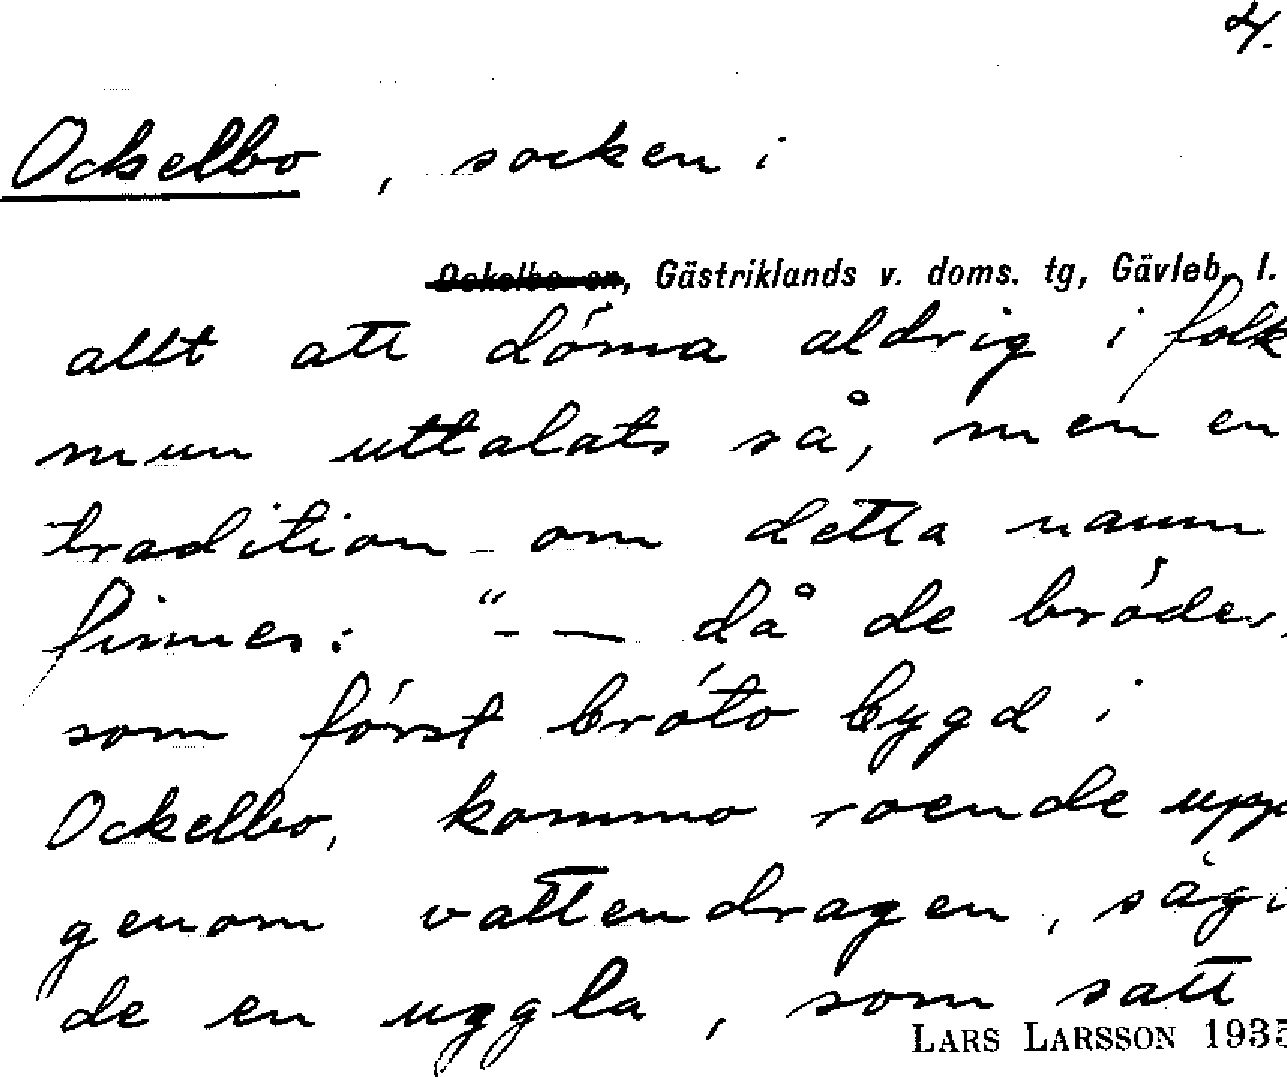 4.
Ockelbo, socken i
Ockelbo sn, Gästriklands v. doms. tg, Gävleb. l.
allt att döma aldrig i folk
mun uttalats så, men en
tradition om detta namn
finnes: "- — då de bröder,
som först bröto bygd i
Ockelbo, kommo roende upp
genom vattendragen, sågo
de en uggla, som satt
LARS LARSSON 1935